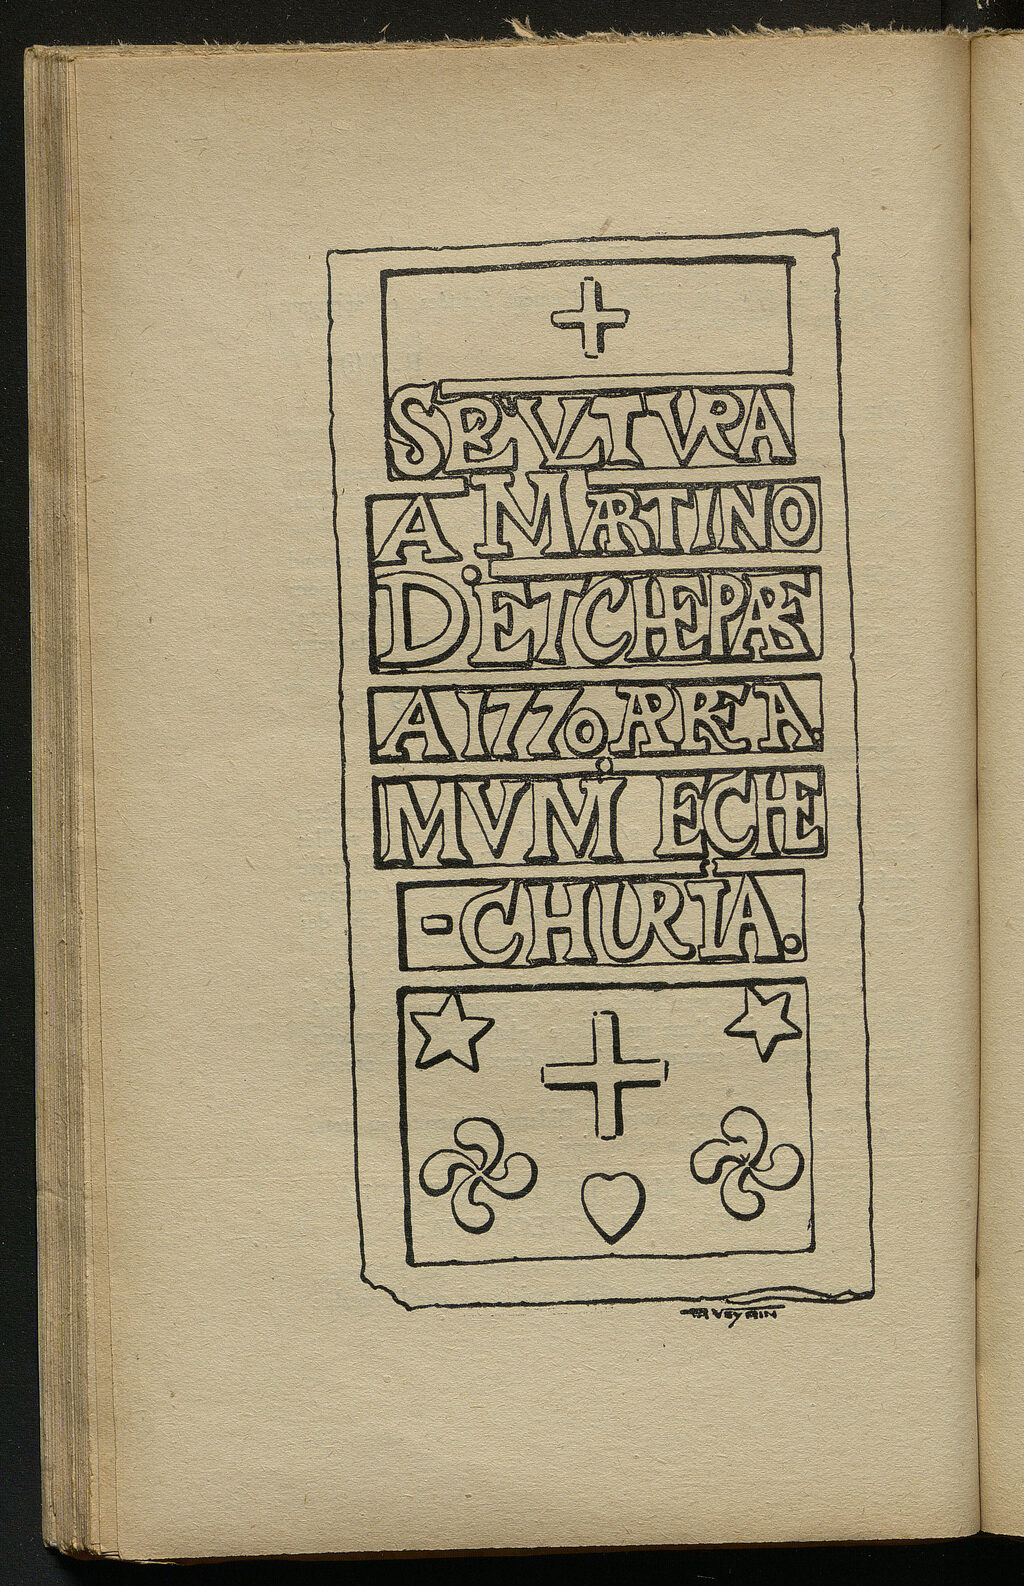 SEPVLTVRA
A MARTINO
D'ETCHEPARE
A 1770 APREA.
MVMI ECHE
-CHURIA.
PH VEYRIN